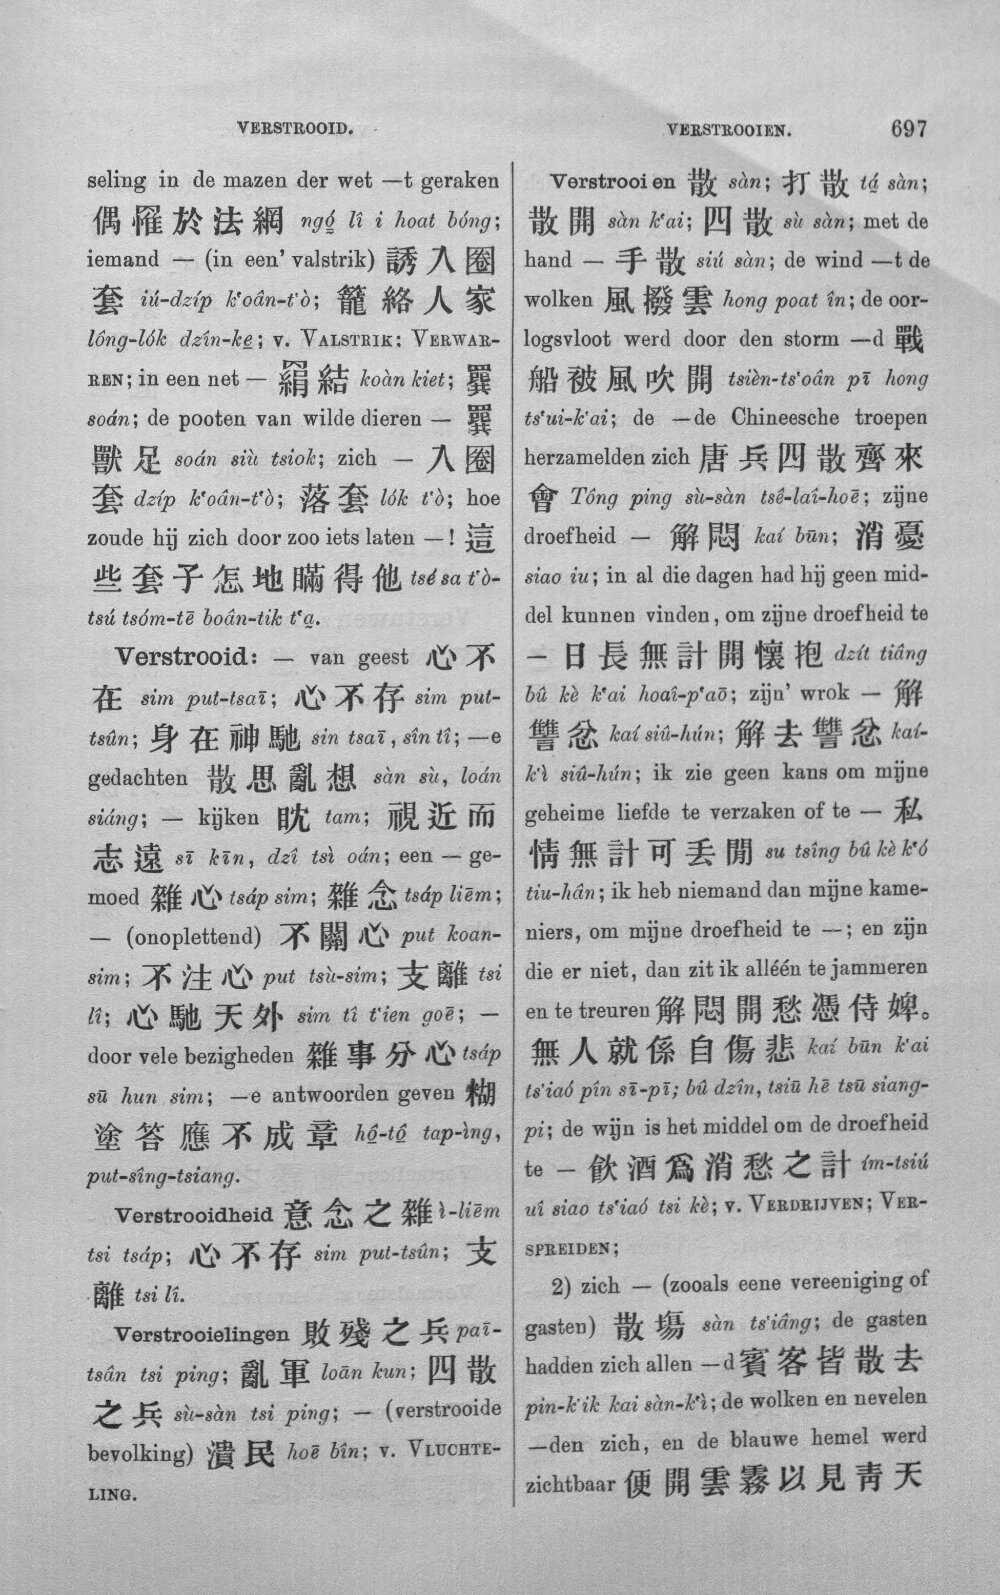 VERSTROOID.
VERSTROOIEN. 697
seling in de mazen der wet —t geraken
偶罹於法網 ngó̤ lî i hoat bóng;
iemand — (in een' valstrik) 誘入圈
套 iú-dzíp k'oân-t'ò; 籠絡人家
lông-lók dzîn-ke̤; v. VALSTRIK: VERWAR-
REN; in een net — 罥結 koàn kiet; 罺
soán; de pooten van wilde dieren —
獸足 soán siù tsiok; zich — 入圈
套 dzíp k'oân-t'ò; 落套 lók t'ò; hoe
zoude hij zich door zoo iets laten —! 這
些套子怎地瞞得他 tsé sa t'ò-
tsú tsóm-tē boân-tik t'a̤.
Verstrooid: — van geest 心不
在 sim put-tsaī; 心不存 sim put-
tsûn; 身在神馳 sin tsaī, sîn tî; —e
gedachten 散思亂想 sàn sù, loán
siáng; — kijken 眈 tam; 視近而
志遠 sī kīn, dzî tsì oán; een — ge-
moed 雜心 tsáp sim; 雜念 tsáp liēm;
— (onoplettend) 不關心 put koan-
sim; 不注心 put tsù-sim; 支離 tsi
lî; 心馳天外 sim tî t'ien goē; —
door vele bezigheden 雜事分心 tsáp
sū hun sim; —e antwoorden geven 糊
塗答應不成章 hô̤-tô̤ tap-ìng,
put-sîng-tsiang.
Verstrooidheid 意念之雜 ì-liēm
tsi tsáp; 心不存 sim put-tsûn; 支
離 tsi lî.
Verstrooielingen 敗殘之兵 paī-
tsân tsi ping; 亂軍 loān kun; 四散
之兵 sù-sàn tsi ping; — (verstrooide
bevolking) 潰民 hoē bîn; v. VLUCHTE-
LING.
Verstrooien 散 sàn; 打散 tá̤ sàn;
散開 sàn k'ai; 四散 sù sàn; met de
hand — 手散 siú sàn; de wind —t de
wolken 風撥雲 hong poat în; de oor-
logsvloot werd door den storm —d 戰
船被風吹開 tsièn-ts'oân pī hong
ts'ui-k'ai; de —de Chineesche troepen
herzamelden zich 唐兵四散齊來
會 Tông ping sù-sàn tsê-laî-hoē; zijne
droefheid — 解悶 kaí būn; 消憂
siao iu; in al die dagen had hij geen mid-
del kunnen vinden, om zijne droefheid te
— 日長無計開懷抱 dzít tiâng
bû kè k'ai hoaî-p'aō; zijn' wrok — 解
讐忿 kaí siû-hún; 解去讐忿 kaí-
k'ì siû-hún; ik zie geen kans om mijne
geheime liefde te verzaken of te — 私
情無計可丟閒 su tsîng bû kè k'ó
tiu-hân; ik heb niemand dan mijne kame-
niers, om mijne droefheid te —; en zijn
die er niet, dan zit ik alléén te jammeren
en te treuren 解悶開愁憑侍婢。
無人就係自傷悲 kaí būn k'ai
ts'iaó pîn sī-pī; bû dzîn, tsiū hē tsū siang-
pi; de wijn is het middel om de droefheid
te — 飲酒爲消愁之計 ím-tsiú
uî siao ts'iaó tsi kè; v. VERDRIJVEN; VER-
SPREIDEN;
2) zich — (zooals eene vereeniging of
gasten) 散塲 sàn ts'iâng; de gasten
hadden zich allen —d 賓客皆散去
pin-k'ik kai sàn-k'ì; de wolken en nevelen
—den zich, en de blauwe hemel werd
zichtbaar 便開雲霧以見靑天